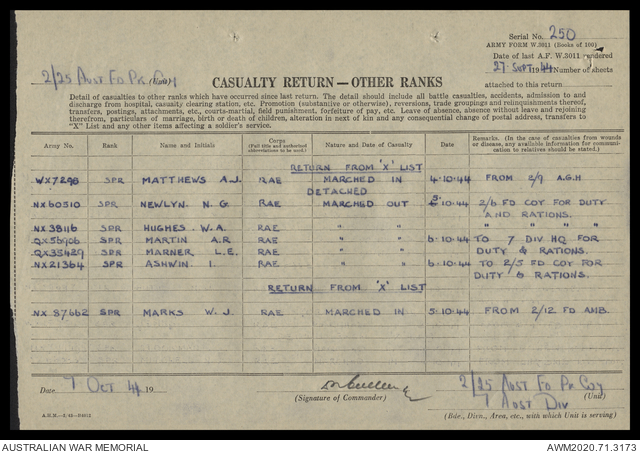 Serial No. 250
ARMY FORM W.3011 (Books of 100)
Date of last A.F. W.3011 rendered
27 SEPT 1944 Number of sheets
attached to this return
2/25 AUST FD PK COY (Unit)
CASUALTY RETURN—OTHER RANKS
Detail of casualties to other ranks which have occurred since last return. The detail should include all battle casualties, accidents, admission to and
discharge from hospital, casualty clearing station, etc. Promotion (substantive or otherwise), reversions, trade groupings and relinquishments thereof,
transfers, postings, attachments, etc., courts-martial, field punishment, forfeiture of pay, etc. Leave of absence, absence without leave and rejoining
therefrom, particulars of marriage, birth or death of children, alteration in next of kin and any consequential change of postal address, transfers to
"X" List and any other items affecting a soldier's service.
Army No. Rank Name and Initials Corps (Full title and authorised abbreviations to be used.) Nature and Date of Casualty Date Remarks. (In the case of casualties from wounds or disease, any available information for communication to relatives should be stated.)
RETURN FROM 'X' LIST
WX7298 SPR MATTHEWS A.J. RAE MARCHED IN 4·10·44 FROM 2/9 A.G.H
DETACHED
NX60510 SPR NEWLYN. N.G. RAE MARCHED OUT 5·10·44 2/6 FD COY FOR DUTY
AND RATIONS.
NX38116 SPR HUGHES. W.A. RAE " " " " " "
QX56906 SPR MARTIN A.R RAE " " 6·10·44 TO 7 DIV HQ FOR
QX35429 SPR MARNER L.E. RAE " " DUTY & RATIONS.
NX21364 SPR ASHWIN I. RAE " " 6·10·44 TO 2/5 FD COY FOR
DUTY & RATIONS.
RETURN FROM 'X' LIST
NX 87662 SPR MARKS W.J. RAE MARCHED IN 5·10·44 FROM 2/12 FD AMB.
Date 7 OCT 44 19
(Signature of Commander)
2/25 AUST FD PK COY (Unit)
7 AUST DIV
(Bde., Divn., Area, etc., with which Unit is serving)
AUSTRALIAN WAR MEMORIAL
AWM2020.71.3173